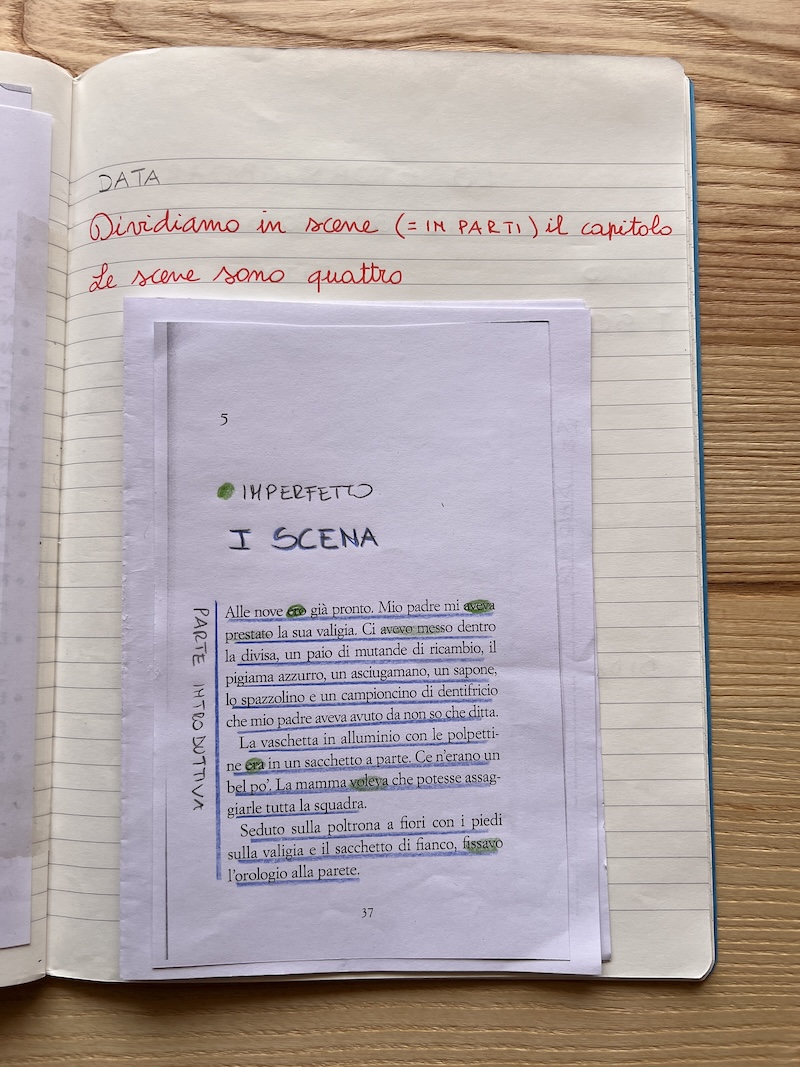 DATA
Dividiamo in scene (= IN PARTI) il capitolo
Le scene sono quattro
5
IMPERFETTO
I SCENA
PARTE INTRODUTTIVA
Alle nove ero già pronto. Mio padre mi aveva
prestato la sua valigia. Ci avevo messo dentro
la divisa, un paio di mutande di ricambio, il
pigiama azzurro, un asciugamano, un sapone,
lo spazzolino e un campioncino di dentifricio
che mio padre aveva avuto da non so che ditta.
La vaschetta in alluminio con le polpetti-
ne era in un sacchetto a parte. Ce n'erano un
bel po'. La mamma voleva che potesse assag-
giarle tutta la squadra.
Seduto sulla poltrona a fiori con i piedi
sulla valigia e il sacchetto di fianco, fissavo
l'orologio alla parete.
37